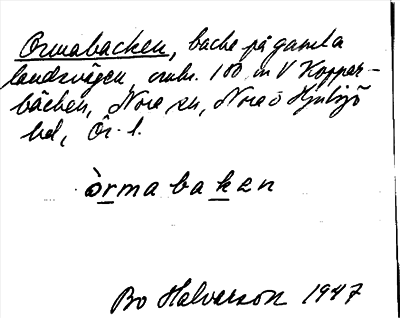 Ormabacken, backe på gamla
landsvägen, omkr. 100 m V Koppar-
bäcken, Nora sn, Nora o Hjulsjö
bd, Ör. l.
òrmabaken
Bo Halvarson 1947